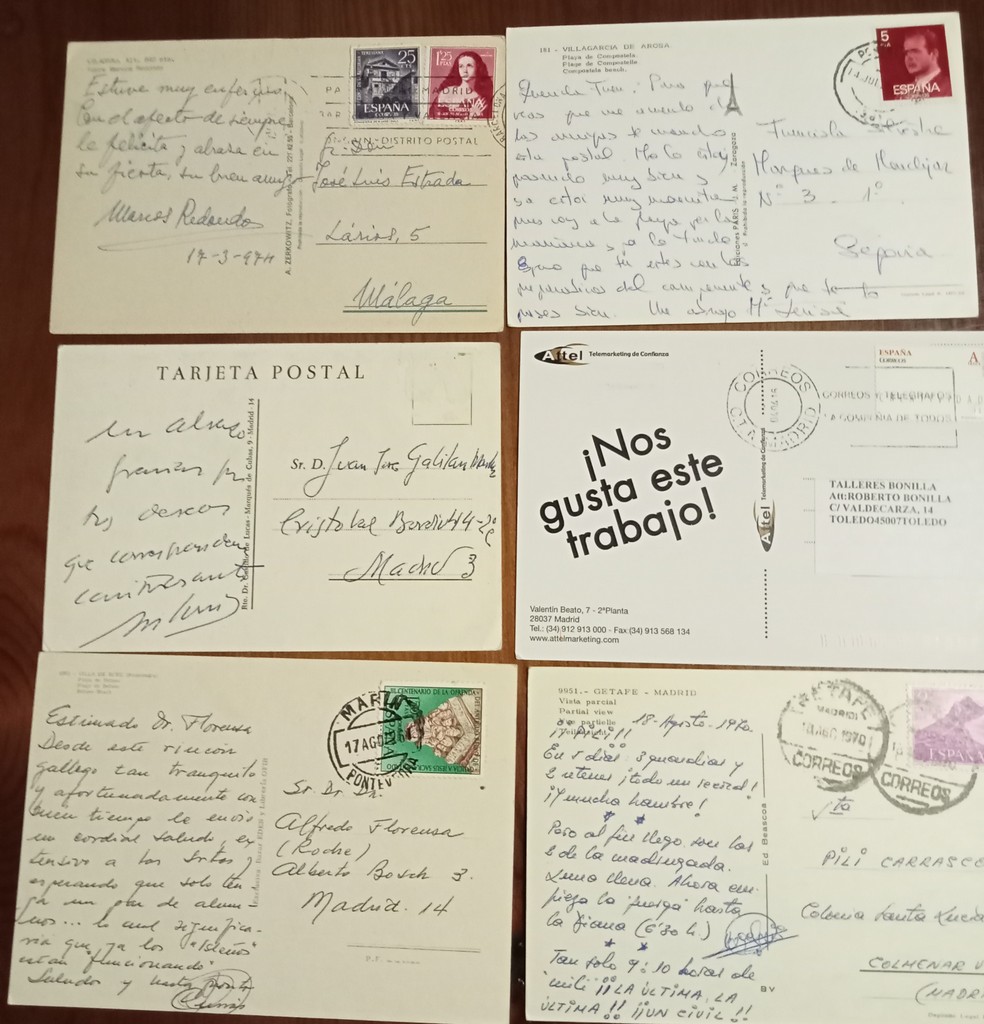 Estuve muy enfermo
Con el afecto de siempre
le felicita y abraza en
su fiesta, su buen amigo
Marcos Redondo
17-3-
A. ZERKOWITZ, Fotógrafo
25
ESPAÑA
CORREOS
1'25
PTAS
MADRID
DISTRITO POSTAL
BARCELONA
José Luis Estrada
Lários, 5
Málaga
181 - VILLAGARCIA DE AROSA
Playa de Compostela.
Plage de Compostelle.
Compostela beach.
Querida
ves que me acuerdo de
las amigas te mando
esta postal. Yo lo estoy
pasando muy bien y
ya estoy muy morenita
nos voy a la playa por las
mañanas y a la
Espero que tú estés con los
preparativos del campamento y que lo
pases bien. Un abrazo Mª
Ediciones PARIS J.M. Zaragoza
Prohibida la reproducción
5
PTA
ESPAÑA
Marques de Mondejar
Nº 3. 1º
Segovia
TARJETA POSTAL
un abrazo
gracias por
tus deseos
que correspondemos
Rte. Dr. Castillo de Lucas - Marqués de Cubas, 9 - Madrid - 14
Sr. D. Juan José
Cristobal Bordiu 14-2º
Madrid 3
Attel Telemarketing de Confianza
¡Nos
gusta este
trabajo!
Valentín Beato, 7 - 2ªPlanta
28037 Madrid
Tel.: (34) 912 913 000 - Fax:(34) 913 568 134
www.attelmarketing.com
Attel Telemarketing de Confianza
CORREOS
C.T.A. MADRID
ESPAÑA
CORREOS
A
CORREOS Y TELEGRAFOS
LA COMPAÑIA DE TODOS
TALLERES BONILLA
Att:ROBERTO BONILLA
C/ VALDECARZA, 14
TOLEDO45007TOLEDO
Estimado Dr. Florensa
Desde este rincón
gallego tan tranquilo
y afortunadamente con
buen tiempo le envío
un cordial saludo, ex
tensivo a las Srtas y
esperando que solo ten
ga un par de alum
nos... lo cual significa-
ría que ya los "Isleños"
están "funcionando"
Saludos y hasta pronto
MARIN
17 AGO
PONTEVEDRA
III CENTENARIO DE LA OFRENDA
Sr. Dr. Dn.
Alfredo Florensa
(Roche)
Alberto Bosch 3.
Madrid. 14
9951.- GETAFE - MADRID
Vista parcial
Partial view
Vue partielle
18-Agosto-1970.
En 5 dias: 3 guardias y
2 retenes ¡todo un recital!
¡Y mucha hambre!
Pero al fin llego son las
2 de la madrugada.
Luna llena. Ahora em-
pieza la "juerga" hasta
la diana (6'30 h.)
Tan solo 9 ó 10 horas de
"mili" ¡¡LA ÚLTIMA, LA
ÚLTIMA!! ¡¡UN CIVIL!!
Ed. Beascoa
BV
GETAFE
(MADRID)
18 AGO 1970
CORREOS
CORREOS
ESPAÑA
Sta
PILI CARRASCO
Colonia Santa Lucia
COLMENAR V
(MADR